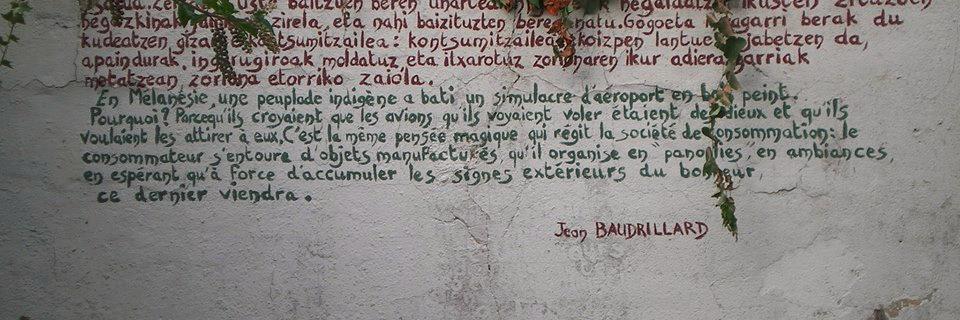 baituzten beren
zirela, eta nahi baizituzten
berak du
kudeatzen kontsumitzailea: kontsumitzailea ekoizpen lantue jabetzen da,
apaindurak, ingurugiroak moldatuz eta itxarotuz zorionaren ikur adierazgarriak
metatzean zoriona etorriko zaiola.
En Mélanésie, une peuplade indigène a bati un simulacre d'aéroport en bois peint.
Pourquoi? Parcequ'ils croyaient que les avions qu'ils voyaient voler étaient des dieux et qu'ils
voulaient les attirer à eux, C'est la même pensée magique qui régit la société de consommation: le
consommateur s'entoure d'objets manufacturés, qu'il organise en "panoplies", en ambiances,
en espérant qu'à force d'accumuler les signes extérieurs du bonheur,
ce dernier viendra.
Jean BAUDRILLARD